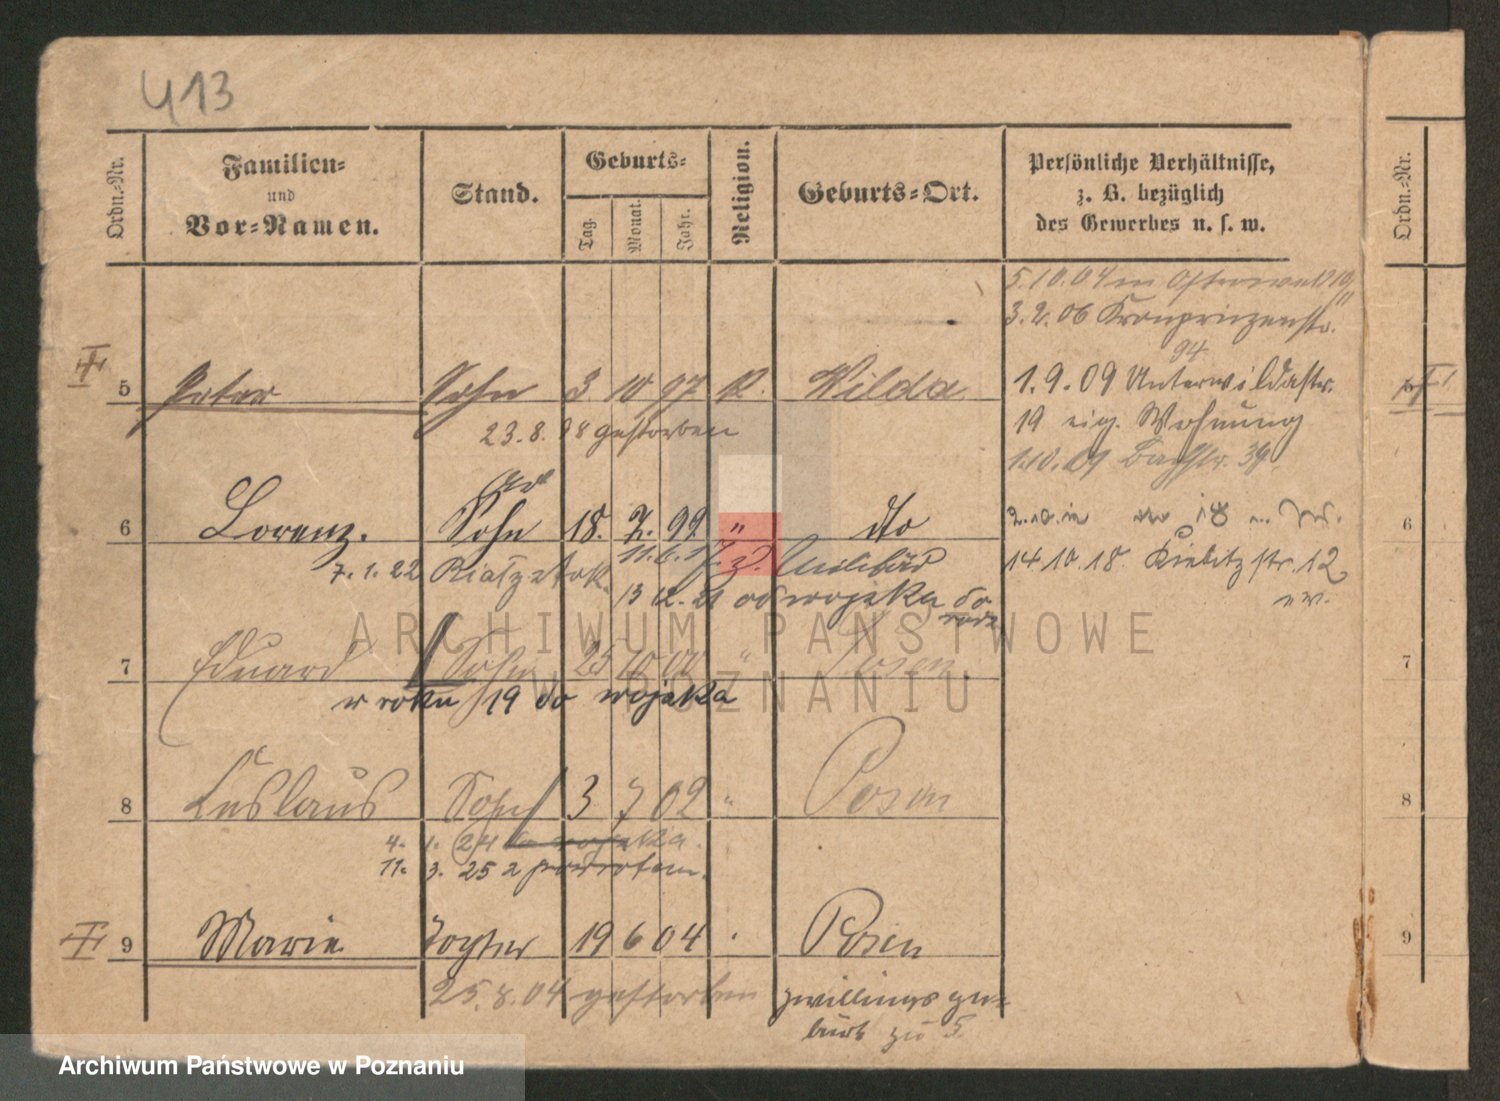 413
Ordn.-Nr.
Familien-
und
Vor-Namen.
Stand.
Geburts-
Tag.
Monat.
Jahr.
Religion.
Geburts-Ort.
Persönliche Verhältnisse,
z. B. bezüglich
des Gewerbes u. s. w.
Ordn.-Nr.
5.10.04
3.2.06 Kronprinzenstr.
94
5 Peter Sohn 3 10 97 K. Wilda
1.9.09 Unterwildastr.
23.8.98 gestorben
19 eig. Wohnung
1.10.09 Bachstr. 39
6 Lorenz. Sohn 18. 7. 99 " dto
6
11.6.17. z. Militär
14.10.18. Kiebitzstr. 12
7.1.22
13 12. 21 od wojska do
7 Eduard Sohn 25 10 00 " Posen
7
w roku 19 do wojska
8 Ceslaus Sohn 3 7 02 " Posen
8
4. 1. 24 do wojska.
11. 3. 25 z powrotem.
9 Marie Tochter 19 6 04 Posen
9
25.8.04 gestorben
Zwillingsge-
burt zu 5.
ARCHIWUM PAŃSTWOWE
W POZNANIU
Archiwum Państwowe w Poznaniu